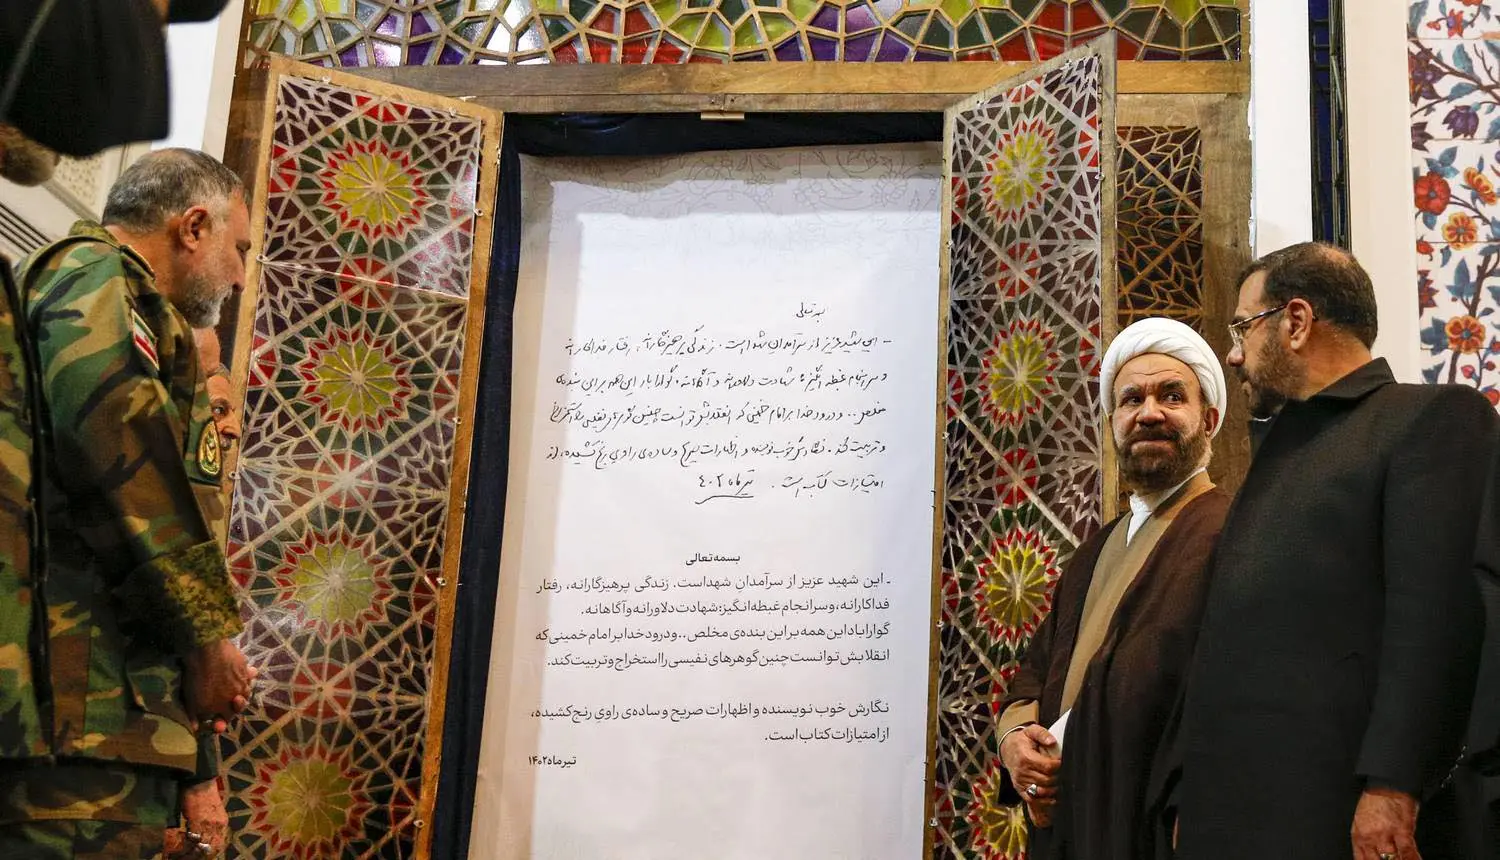 بسمه تعالی
ـ این شهید عزیز از سرآمدان شهدا است. زندگی پرهیزگارانه، رفتار فداکارانه
و سرانجام غبطه انگیز: شهادت دلاورانه و آگاهانه. گوارا باد این همه بر این بنده‌ی
مخلص.. و درود خدا بر امام خمینی که انقلابش توانست چنین گوهرهای نفیسی را استخراج
و تربیت کند. نگارش خوب نویسنده و اظهارات صریح و ساده‌ی راوی رنج کشیده، از
امتیازات کتاب است. تیرماه ۱۴۰۲
بسمه تعالی
ـ این شهید عزیز از سرآمدانِ شهداست. زندگی پرهیزگارانه، رفتار
فداکارانه، و سرانجام غبطه‌انگیز: شهادت دلاورانه و آگاهانه.
گوارا باد این همه بر این بنده‌ی مخلص.. و درود خدا بر امام خمینی که
انقلابش توانست چنین گوهرهای نفیسی را استخراج و تربیت کند.
نگارش خوب نویسنده و اظهارات صریح و ساده‌ی راویِ رنج کشیده،
از امتیازات کتاب است.
تیرماه ۱۴۰۲